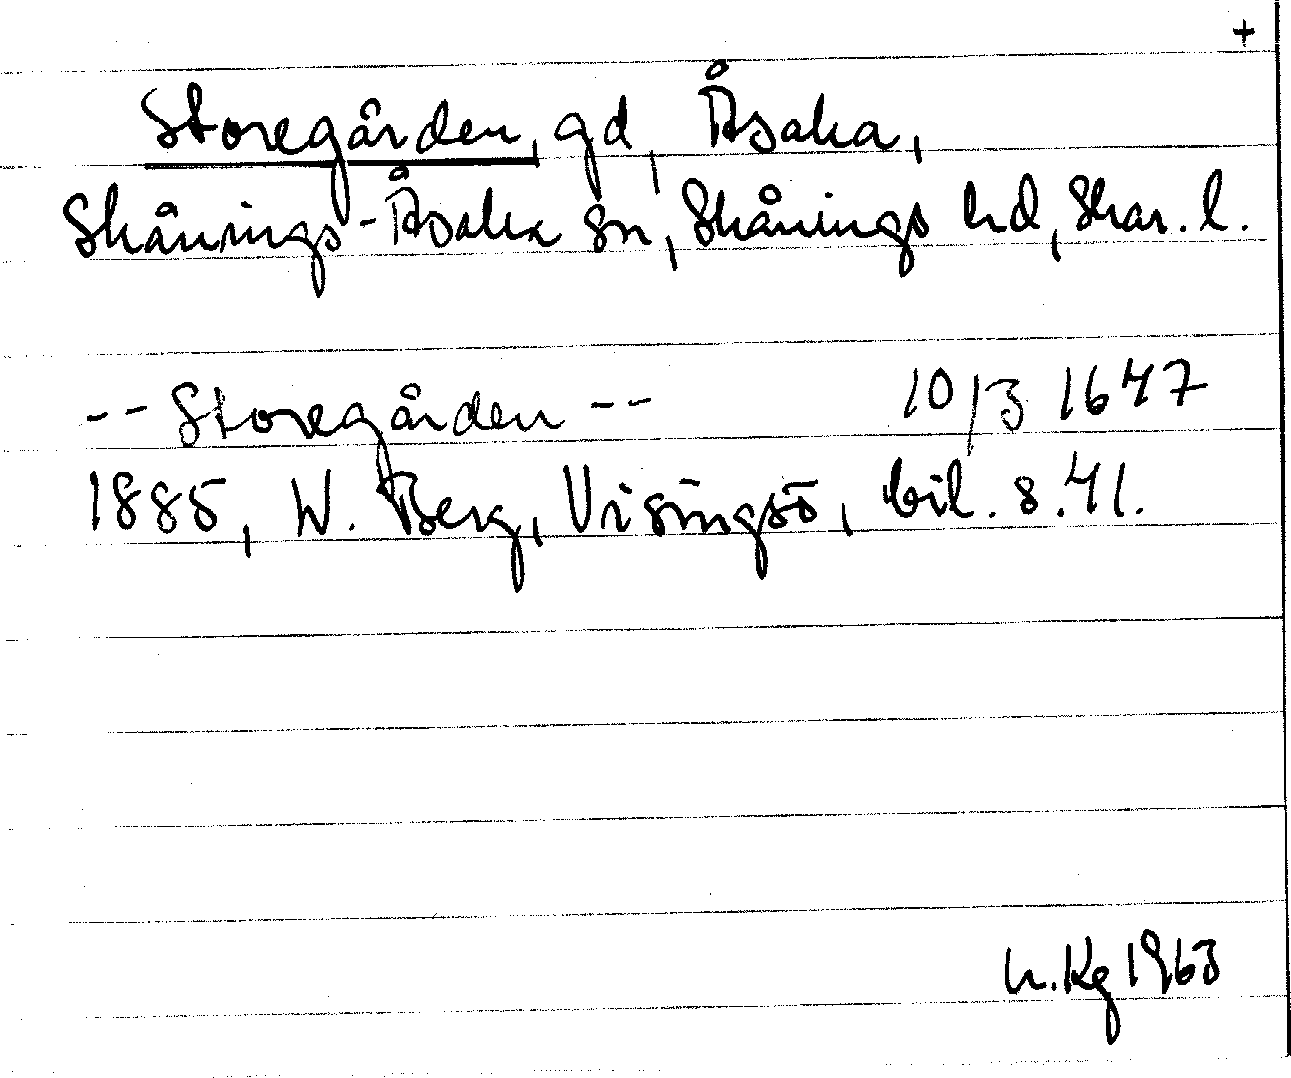 +
Storegården, gd, Åsaka,
Skånings-Åsaka sn, Skånings hd, Skar. l.
-- Storegården -- 10/3 1647
1885, W. Berg, Visingsö, bil. s. 41.
h.Kg 1963